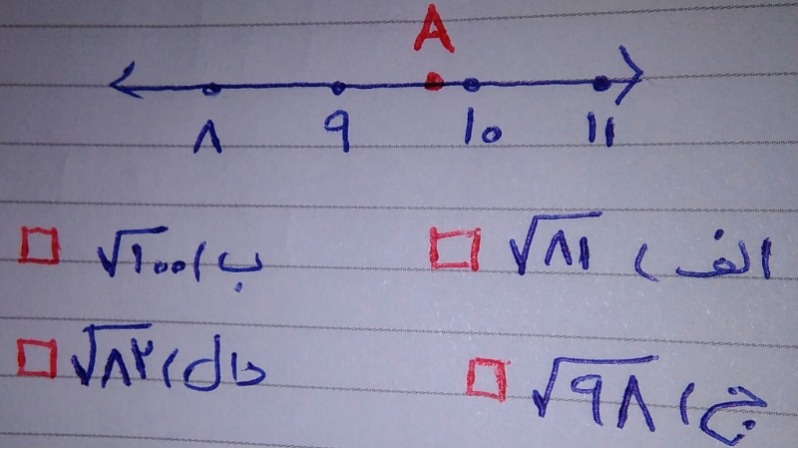 A
۸ ۹ ۱۰ ۱۱
الف) √۸۱ ب) √۱۰۰
ج) √۹۸ دال) √۸۲